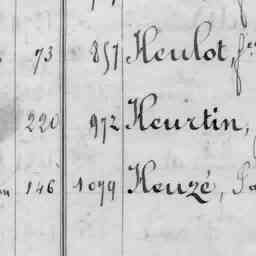 73 857 Heulot,
220 972 Heurtin,
146 1079 Heuzé,